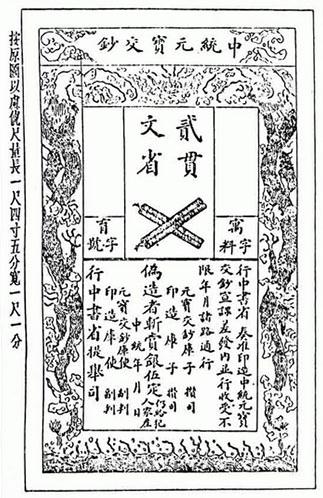 中統元寶交鈔
貳貫
文省
寓字料
育字號
行中書省 奏准印造中統元寶
交鈔宣課差發內並行收受不
限年月諸路通行
元寶交鈔庫子 攢司
印造庫子 攢司
偽造者斬賞銀伍定仍給犯人家產
中統 年 月 日
元寶交鈔庫使 副判
印造庫使 副判
行中書省提舉司
按原圖以慮俿尺量長一尺四寸五分寬一尺一分